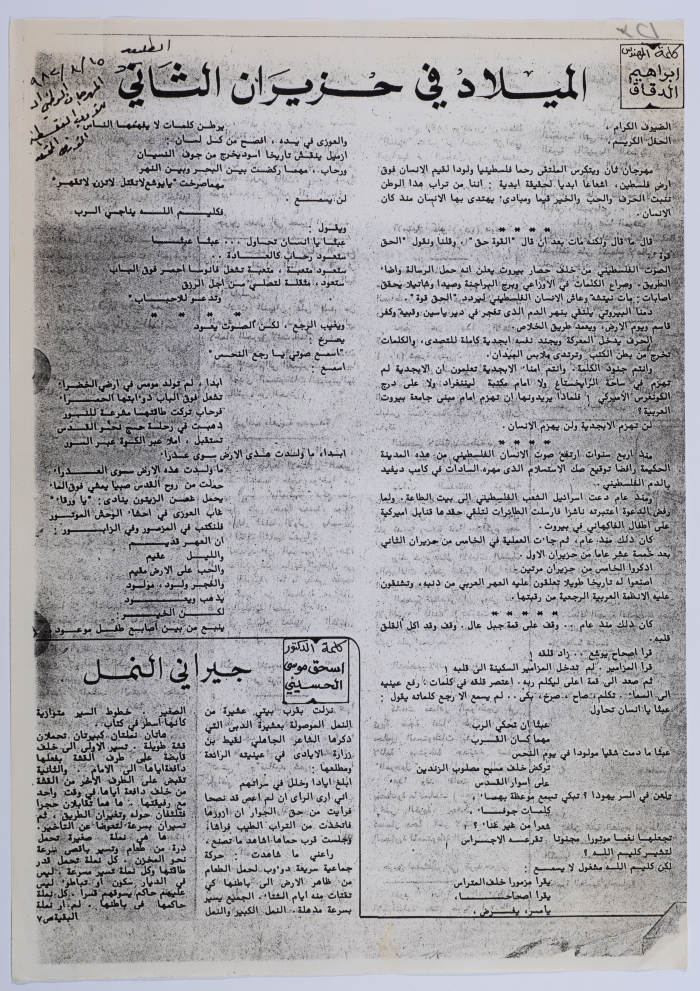 ١٥/٨/٩٨٣
الطليعة
كلمة المهندس
ابراهيم
الدقاق
الميلاد في حزيران الثاني
الضيوف الكرام ،
الحفل الكريم ،
مهرجان ثان ويتكرس الملتقى رحما فلسطينيا ولودا لقيم الانسان فوق
ارض فلسطين، اشعاعا ابديا لحقيقة ابدية : اننا من تراب هذا الوطن
نثبت الحرف والحب والخير قيما ومبادىء يهتدى بها الانسان منذ كان
الانسان .
* * * *
قال ما قال ولكنه مات بعد ان قال "القوة حق" ، وقلنا ونقول "الحق
قوة".
الصوت الفلسطيني من خلف حصار بيروت يعلن انه حمل الرسالة واضاء
الطريق . وصراع الكلمات في الاوزاعي وبرج البراجنة وصيدا وشاتيلا يحقق
اصابات : مات نيتشه وعاش الانسان الفلسطيني ليردد "الحق قوة".
دمنا البيروتي يلتقي بنهر الدم الذي تفجر في دير ياسين وقبية وكفر
قاسم ويوم الارض، ويعمد طريق الخلاص.
الحرف يدخل المعركة ويجند نفسه ابجدية كاملة للتصدي، والكلمات
تخرج من بطن الكتب وترتدي ملابس الميدان .
وانتم جنود الكلمة ، وانتم امناء الابجدية تعلمون ان الابجدية لم
تهزم في ساحة الرايخستاغ ولا امام مكتبة لينينغراد ولا على درج
الكونغرس الأميركي ! فلماذا يريدونها ان تهزم امام مبنى جامعة بيروت
العربية ؟
لن تهزم الابجدية ولن يهزم الانسان .
* * * *
منذ اربع سنوات ارتفع صوت الانسان الفلسطيني من هذه المدينة
الحكيمة رافضا توقيع صك الاستسلام الذي مهره السادات في كامب ديفيد
بالدم الفلسطيني .
ومنذ عام دعت اسرائيل الشعب الفلسطيني الى بيت الطاعة ، ولما
رفض الدعوة اعتبرته ناشزا فارسلت الطائرات لتلقي حقدها قنابل اميركية
على اطفال الفاكهاني في بيروت .
كان ذلك منذ عام، ثم جاءت العملية في الخامس من حزيران الثاني
بعد خمسة عشر عاما من حزيران الاول .
اذكروا الخامس من حزيران مرتين .
اصنعوا له تاريخا طويلا تعلقون عليه العهر العربي من ذنبه، وتشنقون
عليه الانظمة العربية الرجعية من رقبتها .
* * * * *
كان ذلك منذ عام .. وقف على قمة جبل عال . وقف وقد اكل القلق
قلبه .
قرا اصحاح يوشع .. زاد قلقه !
قرا المزامير . لم تدخل المزامير السكينة الى قلبه !
ثم صعد الى قمة اعلى ليكلم ربه . اعتصر قلقه في كلمات : رفع عينيه
الى السماء . تكلم، صاح، صرخ، بكى .. لم يسمع الا رجع كلماته يقول :
عبثا يا انسان تحاول
عبثا ان تحكي الرب
مهما كان القرب
عبثا ما دمت شقيا مولودا في يوم النحس
تركض خلف مسيح مصلوب الزندين
على اسوار القدس
تلعن في السر يهوذا ؟ تبكي تسمع موعظة بهماء ،
كلمات جوفاء ،
شعرا من غير غناء ؟
تجعلها نغما موتورا مجنونا تقرعه الاجراس
لتشير كليم الله ؟
لكن كليم الله مشغول لا يسمع :
يقرا مزمورا خلف المتراس
يقرا اصحاحا ،
يامر، يفرض ،
يرطن كلمات لا يفهمها الناس
والعوزي في يده ، افصح من كل لسان :
ازميل ينقش تاريخا اسود يخرج من جوف النسيان
ورحاب ، مهما ركضت بين البحر وبين النهر
مهما صرخت "يا يوشع لا تقتل لا تزن لا تقهر"
لن يسمع .
فكليم الله يناجي الرب
ويقول :
عبثا يا انسان تحاول ... عبثا عبثا
ستعود رحاب كالعادة ..
ستعود متعبة ، متعبة تشعل فانوسا احمر فوق الباب
ستعود ، مثقلة لتصلي من اجل الرزق
وتدعو للاحباب"
* * * *
ويغيب الرجع ، لكن الصوت يعود
يصرخ :
"اسمع صوتي يا رجع النحس"
اسمع :
ابدا ، لم تولد مومس في ارضي الخضراء
تشعل فوق الباب ذوابتها الحمراء
فرحاب تركت طاقتها مشرعة للنور
ذهبت في رحلة حج نحو القدس
تستقبل ، املا عبر الكوة عبر السور
ابدا، ما ولدت هذي الارض سوى عذراء
ما ولدت هذه الارض سوى العذراء
حملت من روح القدس صبيا يمشي فوق الماء
يحمل غصن الزيتون ينادي : "يا ورقاء"
غاب العوزي في احشاء الوحش الموتور
فلنكتب في المزمور وفي الزابور :
ان العهر قديم
والليل عقيم
والحب على الارض مقيم
والفجر ولود، مولود
يذهب ويعود
لكن الخير
ينبع من بين اصابع طفل موعود
كلمة الدكتور
اسحق موسى
الحسيني
جيراني النمل
نزلت بقرب بيتي عشيرة من
النمل الموصولة بعشيرة الدبى التي
ذكرها الشاعر الجاهلي لقيط بن
زرارة الايادي في عينيته الرائعة
ومطلعها :
ابلغ ايادا وخلل في سراتهم
اني ارى الراي ان لم اعص قد نصعا
فرايت من حق الجوار ان ازورها
فاتخذت من التراب الطيب فراشا،
وجلست قرب حماها اشاهد ما تصنع،
راعني ما شاهدت : حركة
جماعية سريعة دؤوب لحمل الطعام
من ظاهر الارض الى باطنها كي
تقتات منه ايام الشتاء . الجميع يسير
بسرعة مذهلة . النمل الكبير والنمل
الصغير . خطوط السير متوازية
كأنها اسطر في كتاب .
هاتان نملتان كبيرتان تحملان
قشة طويلة . تسير الاولى الى خلف
قابضة على طرف القشة بفمها
دافعة اياها الى الامام . والثانية
تقبض على الطرف الآخر من القشة
من خلف دافعة اياها في وقت واحد
مع رفيقتها . ها هما تقابلان حجرا
فتلتفان حوله وتغيران الطريق . ثم
تسيران بسرعة لتعوضا عن التأخير .
ها هي نملة صغيرة تحمل
ذرة من طعام ، وتسير باقصى سرعة
نحو المخزن . كل نملة تحمل قدر
طاقتها وكل نملة تسير مسرعة . ليس
في الديار سكون او تباطؤ . ليس
عليهم حاكم يسوقهم قسرا . كل نملة
حاكمها في باطنها . لم ار نملة
البقية ص ٧